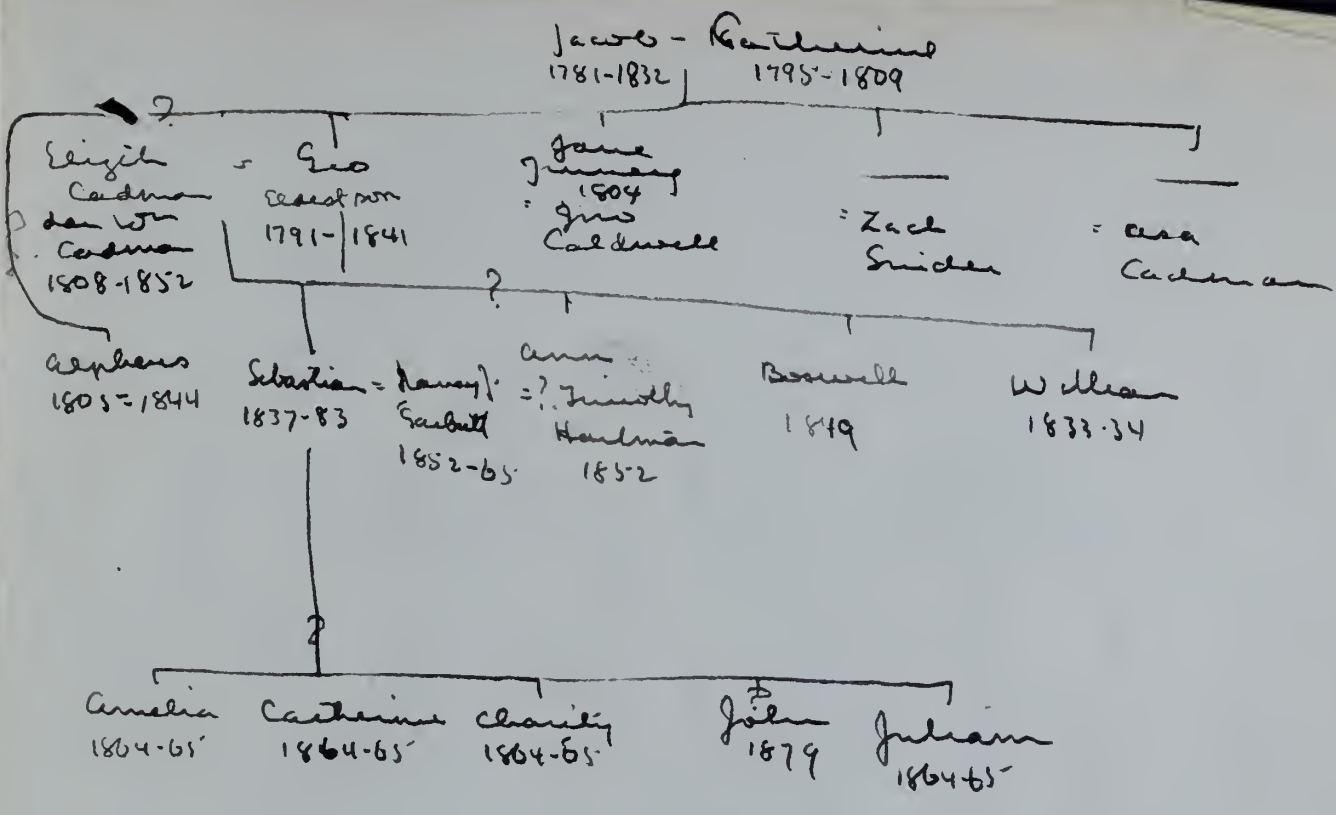 Jacob - Catherine
1781-1832 1795-1809
?
Cadman
Wm
Cadman
1808-1852
= Geo
eldest son
1791-1841
Jane
1804
= Jno
Caldwell
= Zach
Snider
= Asa
Cadman
?
Alpheus
1805-1844
Sebastian =
1837-83
1852-65
Ann
=? Timothy
Hardman
1852
Boswell
1849
William
1833-34
?
Amelia
1864-65
Catherine
1864-65
Charity
1864-65
John
1879
Juliann
1864-65